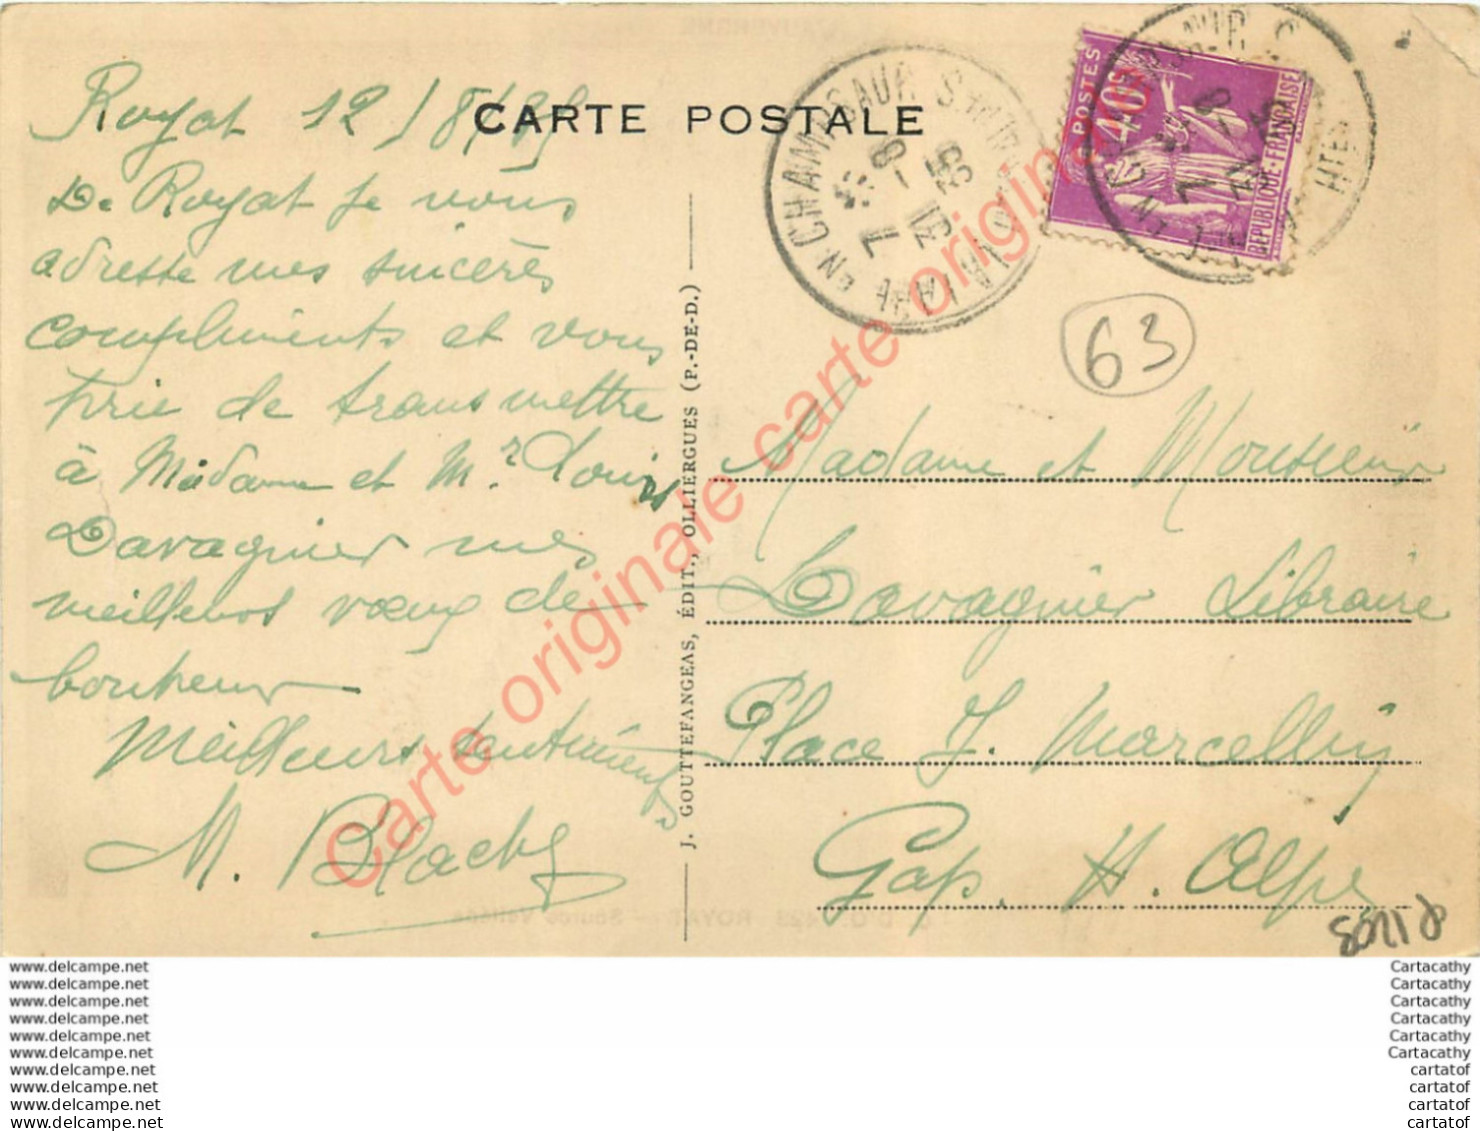 CARTE POSTALE
Royat 12/8/
De Royat je vous
adresse mes sincères
compliments et vous
prie de transmettre
à Madame et Mr. Louis
Davagnier mes
meilleurs vœux de
bonheur
Meilleurs sentiments
M. Blache
J. GOUTTEFANGEAS, ÉDIT., OLLIERGUES (P.-DE-D.)
POSTES
40c
REPUBLIQUE-FRANÇAISE
63
Madame et Monsieur
Davagnier Libraire
Place J. Marcellin
Gap. H. Alpes
Carte originale carte originale
www.delcampe.net
www.delcampe.net
www.delcampe.net
www.delcampe.net
www.delcampe.net
www.delcampe.net
www.delcampe.net
www.delcampe.net
www.delcampe.net
www.delcampe.net
Cartacathy
Cartacathy
Cartacathy
Cartacathy
Cartacathy
Cartacathy
cartatof
cartatof
cartatof
cartatof